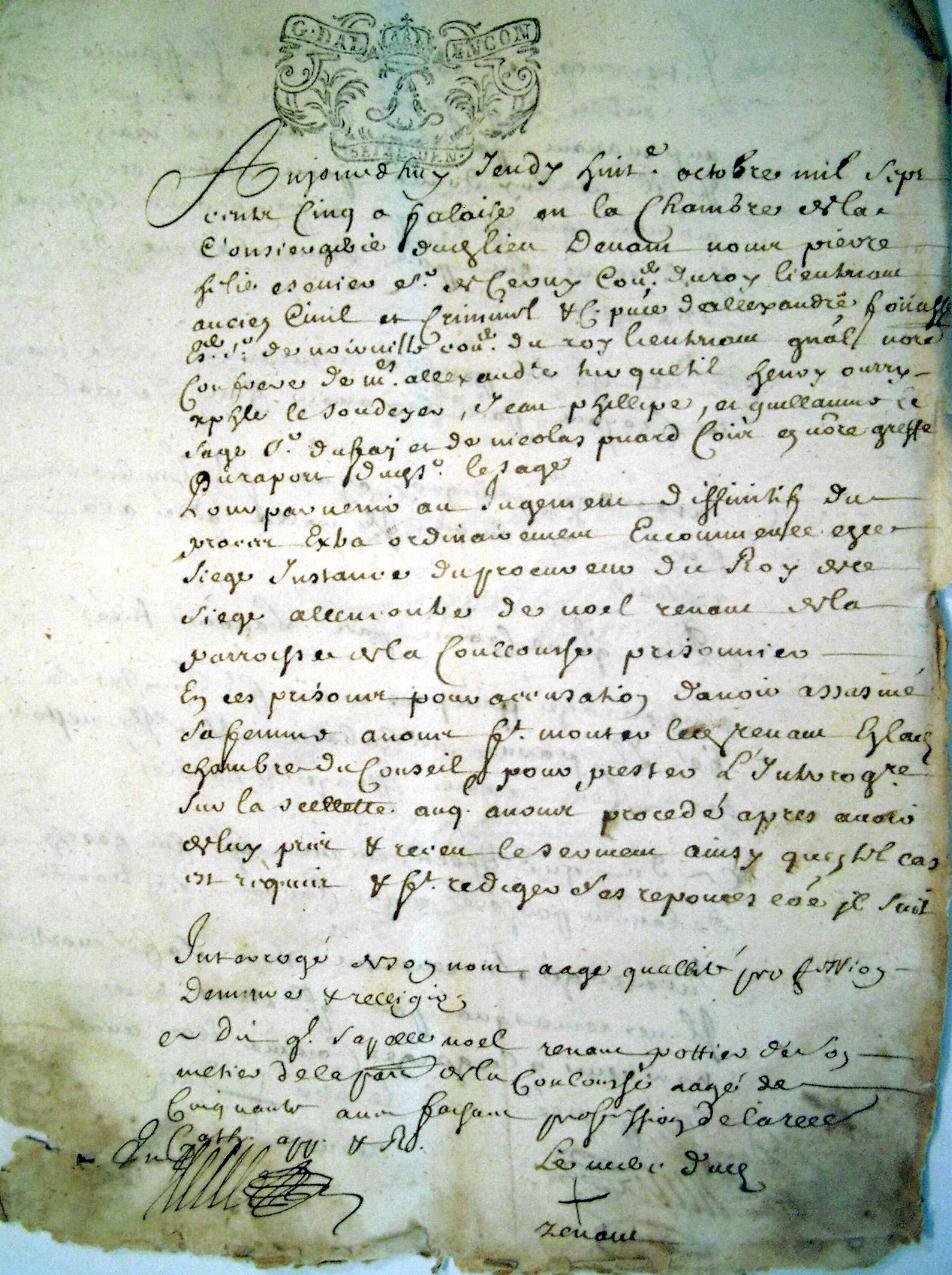 G. DAL ENCON
SEIZE DEN.
Aujourdhuy Jeudy huite. octobre mil sept
centz Cinq a falaise en la Chambre de la
Consiergerie dud lieu Devant nous pierre
helie escuier sr. de Cerny Conr. du roy lieutenant
ancien Civil et Criminel & C. pnce dallexandre fouasse
esr. sr. de noirville conr. du roy lieutenant gnal nore
Confrere de ms. allexandre turquetil henry ourry
le soudeyer, Jean phillipe, et guillaume le
sage sr. et de nicolas puard en nore greffe
Du raport dud sr. le sage
Pour parvenir au Jugement diffinitif du
proces Extra ordinairement Encommencé en ce
siege Instance du procureur du Roy de ce
siege allencontre de noel renant de la
parroisse de la Coullonche prisonnier
En ces prisons pour accusation d'avoir assasiné
sa femme avons ft. monter led renant En la
chambre du Conseil pour prester L'Interogre
sur la scellette auq. avons procedé apres avoir
de luy pris & receu le serment ainsy quen tel cas
est requis & ft. rediger ses reponces coe jl suit
Interogé de son nom, aage quallité proffession
Demeure & relligion
en Dit q. sapelle noel renant pottier de son
metier de la par de la Coulonche aagé de
Cinquante ans faisant proffession de la rel
Cath. app. & Ro.
Le merc dud
+
renant